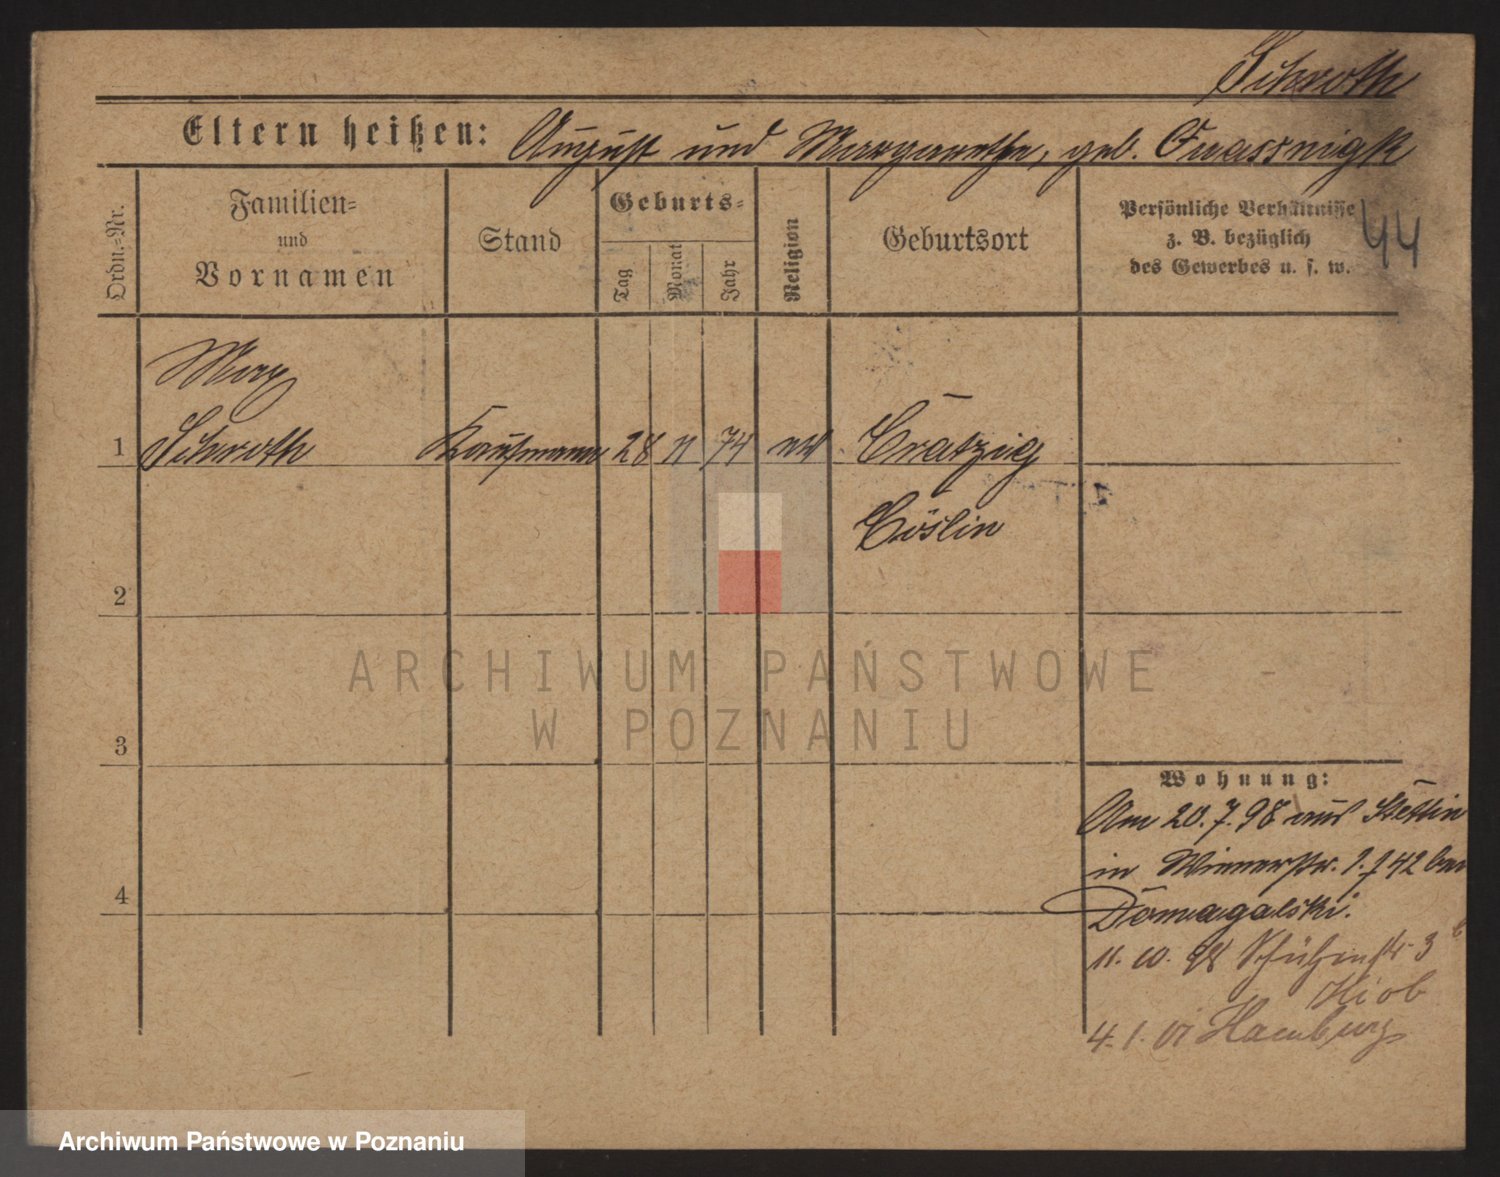 Schroth
Eltern heißen: August und Margarethe, geb.
Ordn.-Nr.
Familien-
und
Vornamen
Stand
Geburts-
Tag
Monat
Jahr
Religion
Geburtsort
Persönliche Verhältnisse
z. B. bezüglich
des Gewerbes u. s. w.
44
Max
1 Schroth Kaufmann 28 11 74 Cratzig
Cöslin
2
ARCHIWUM PAŃSTWOWE
W POZNANIU
3
Wohnung:
Am 20.7.98 aus Stettin
in Wienerstr. 42 bei
4
Domagalski.
11. 10. 98 Schützenstr. 3
Hiob
4. 1. 01 Hamburg
Archiwum Państwowe w Poznaniu